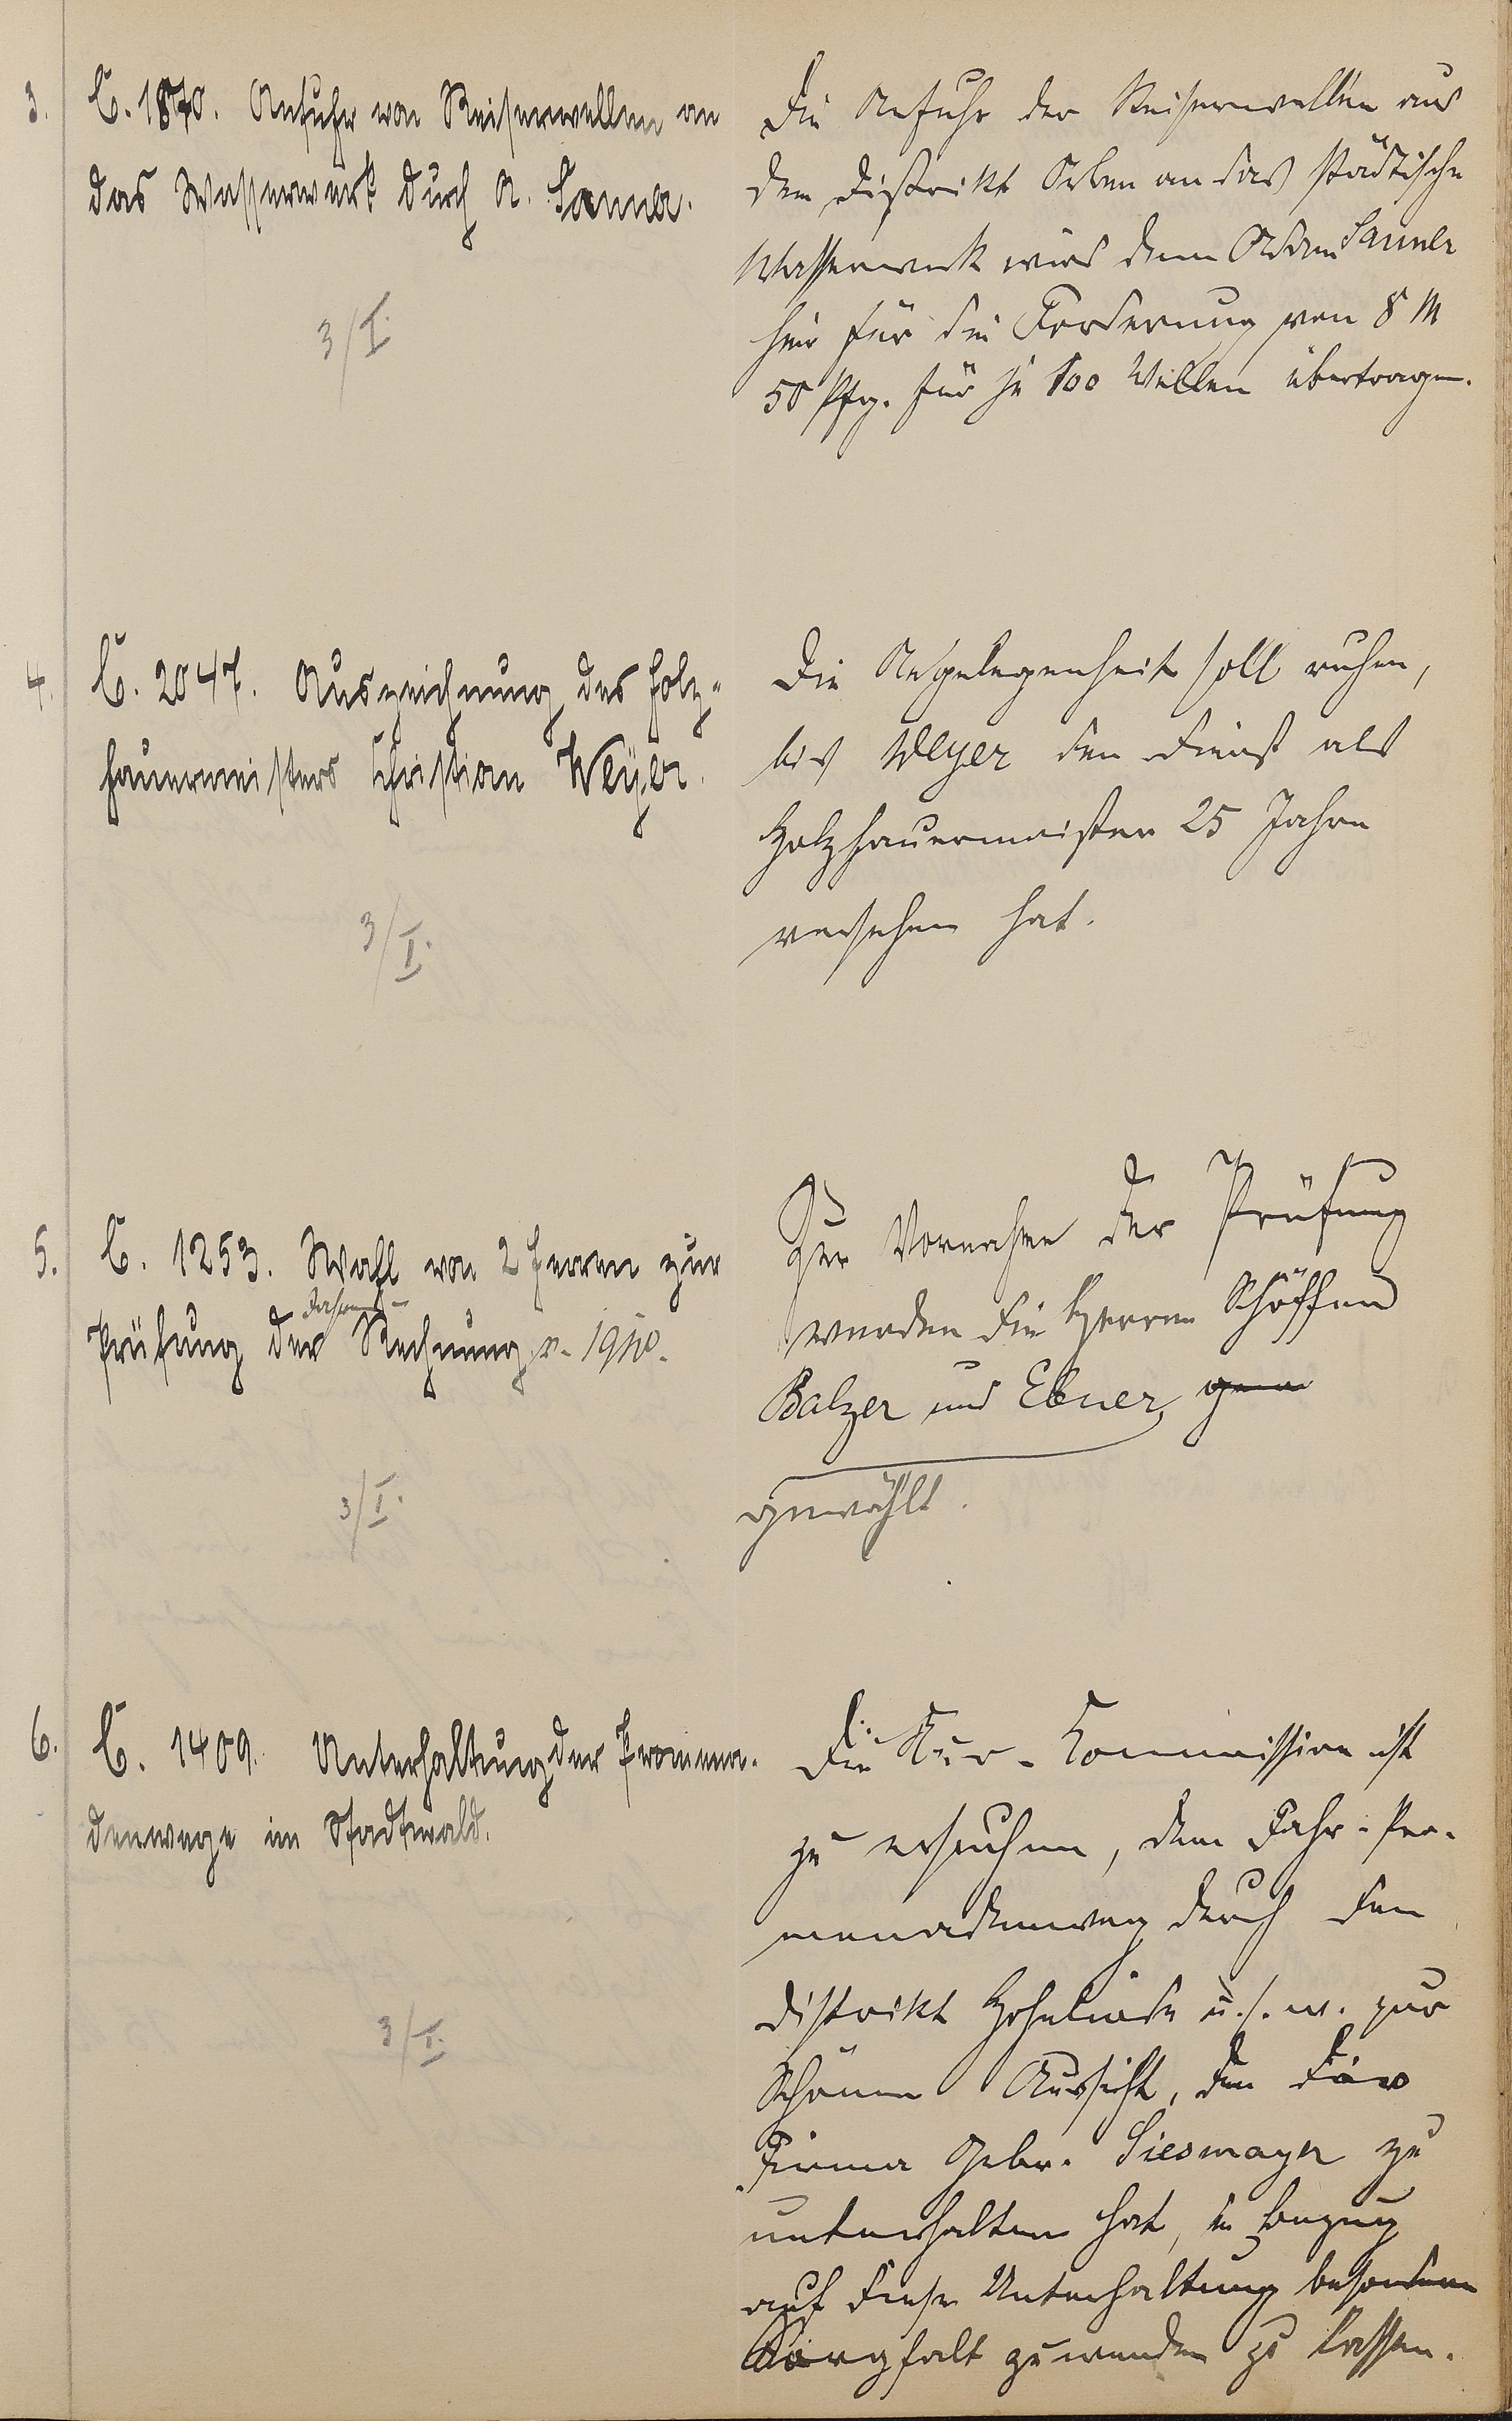 3. C. 1870. Anfuhr von Reiserwellen an
das Wasserwerk durch A. Sanner.
3/I.
Die Anfuhr der Reiserwellen aus
dem Distrikt Erlen an das städtische
Wasserwerk wird dem Adam Sanner
hier für die Forderung von 8 M
50 Pfg. für je 100 Wellen übertragen.
4. C. 2047. Auszeichnung des Holz-
hauermeisters Christian Weyer.
3/I.
Die Angelegenheit soll ruhen,
bis Weyer den Dienst als
Holzhauermeister 25 Jahre
versehen hat.
5. C. 1253. Wahl von 2 Herren zur
Prüfung der Jahres-Rechnung v. 1910.
3/I.
Zur Vornahme der Prüfung
wurden die Herren Schöffen
Balzer und Ebner, gew
gewählt.
6. C. 1409. Unterhaltung der Promena-
denwege im Stadtwald.
3/I.
Die Kur-Commission ist
zu ersuchen, dem Fahr-Pro-
menadenweg durch den
Distrikt Hohelinde u.s.w. zur
Schönen Aussicht, den die
Firma Gebr. Siesmayer zu
unterhalten hat, in Bezug
auf diese Unterhaltung besondere
Sorgfalt zuwenden zu lassen.